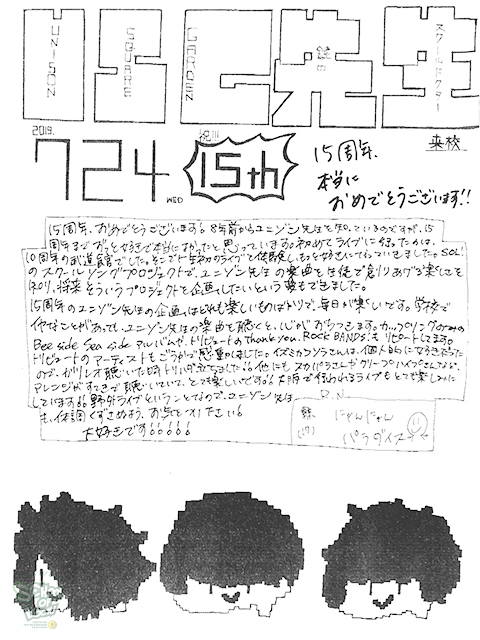 USC先生
UNISON
SQUARE
GARDEN
鍵の
スクールドクター
2019.
724
WED
祝!!!
15th
来校
15周年、
本当に
おめでとうございます!!
15周年、おめでとうございます。8年前からユニゾン先生を知っているのですが、15
周年までずっと好きで本当によかったと思っています。初めてライブに行ったのは、
10周年の武道館でした。そこで生初のライブを体験し、もっと好きになっていきました。SOL!
のスクールソングプロジェクトで、ユニゾン先生の楽曲を生徒で創りあげる楽しさを
知り、将来そういうプロジェクトを企画したいという夢もできました。
15周年のユニゾン先生の企画はどれも楽しいものばかりで、毎日が楽しいです。学校で
イヤなことがあっても、ユニゾン先生の楽曲を聴くと、心がおちつきます。カップリングのみの
Bee side Sea side アルバムや、トリビュートのThank you, ROCK BANDS!もリピートしてます。
トリビュートのアーティストもごうかで感動しました。イズミカワソラさんは、個人的に好きだった
ので、ガラシオ聴いた時トリハダ立ちました。他にもスカパラさんやクリープハイプさんなど、
アレンジがすてきで聴いていて、とても楽しいです。大阪で行われるライブもとても楽しみに
しています。野外ライブということなので、ユニゾン先生
も、体調くずさぬよう、お気をつけ下さい。
大好きです。。。。。。
R.N.
にゃんにゃん
パラダイス
(17)